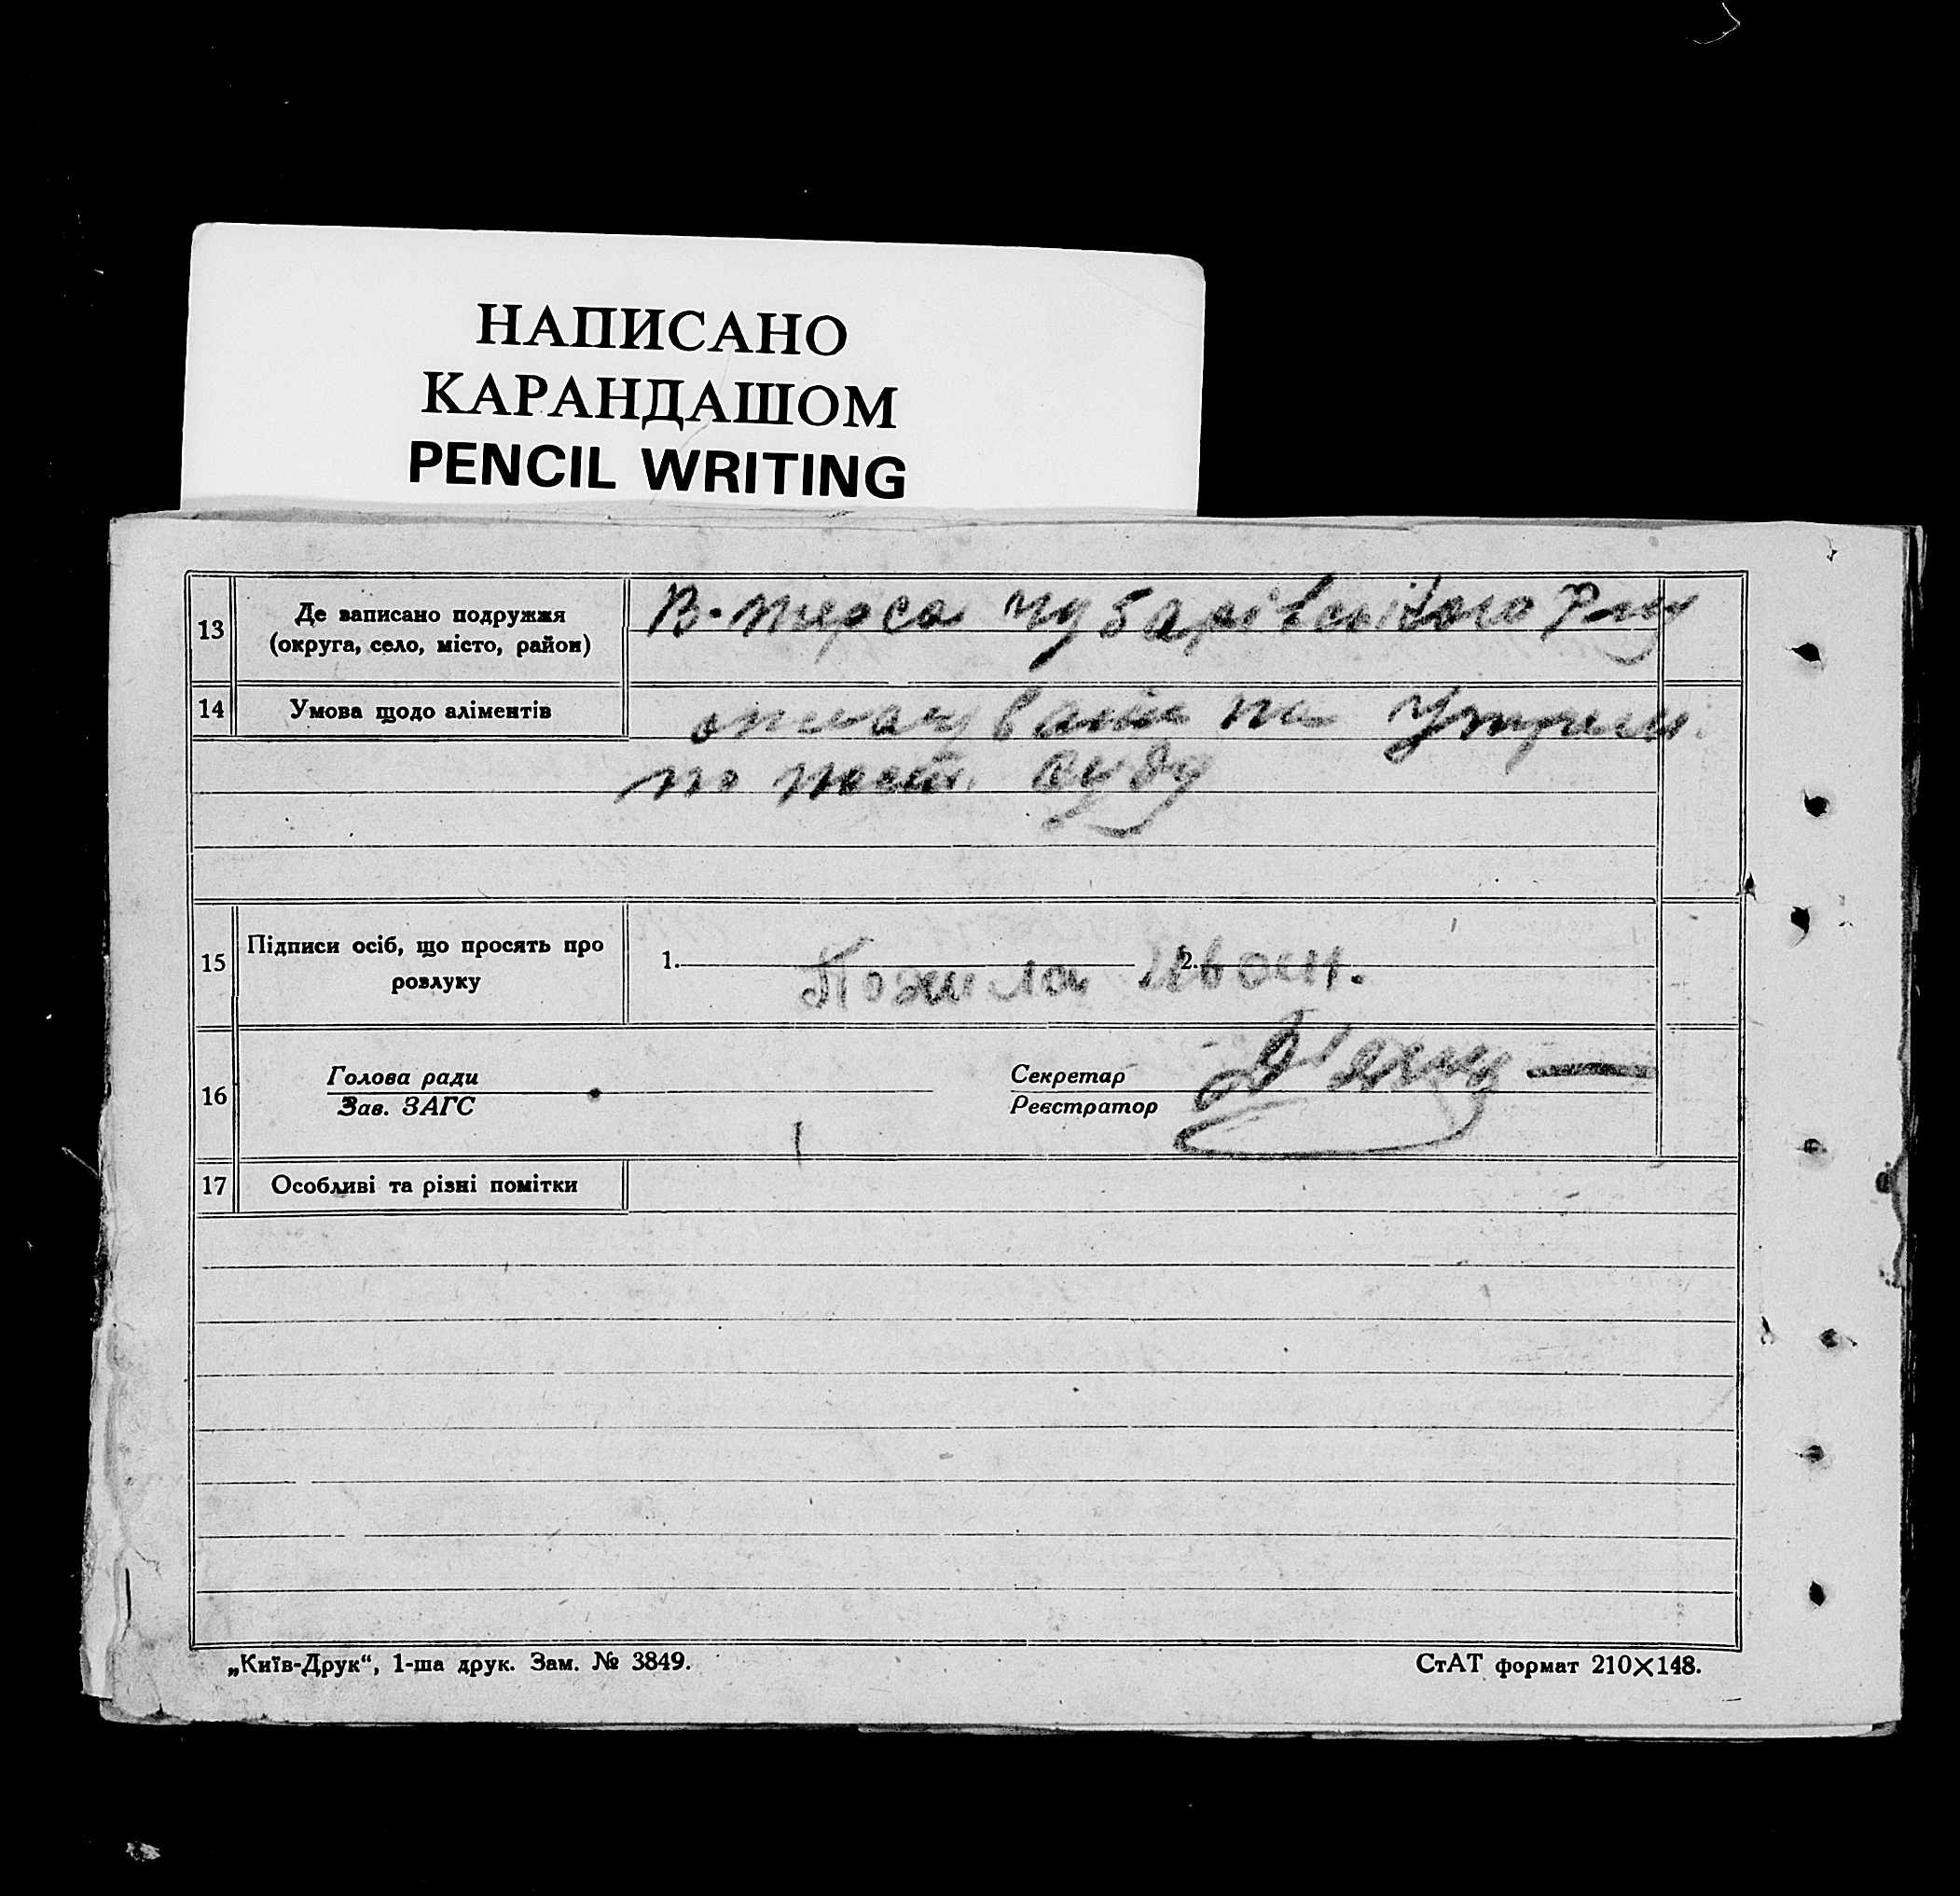 НАПИСАНО
КАРАНДАШОМ
PENCIL WRITING
13 Де записано подружжя
(округа, село, місто, район)
В-Терса Чубарівського Р-ну
14 Умова щодо аліментів
на Утрим.
по пост. суду
15 Підписи осіб, що просять про
розлуку
1. 2.
Пожила Иван.
16 Голова ради
Зав. ЗАГС
Секретар
Реєстратор
17 Особливі та різні помітки
„Київ-Друк“, 1-ша друк. Зам. № 3849.
СтАТ формат 210×148.